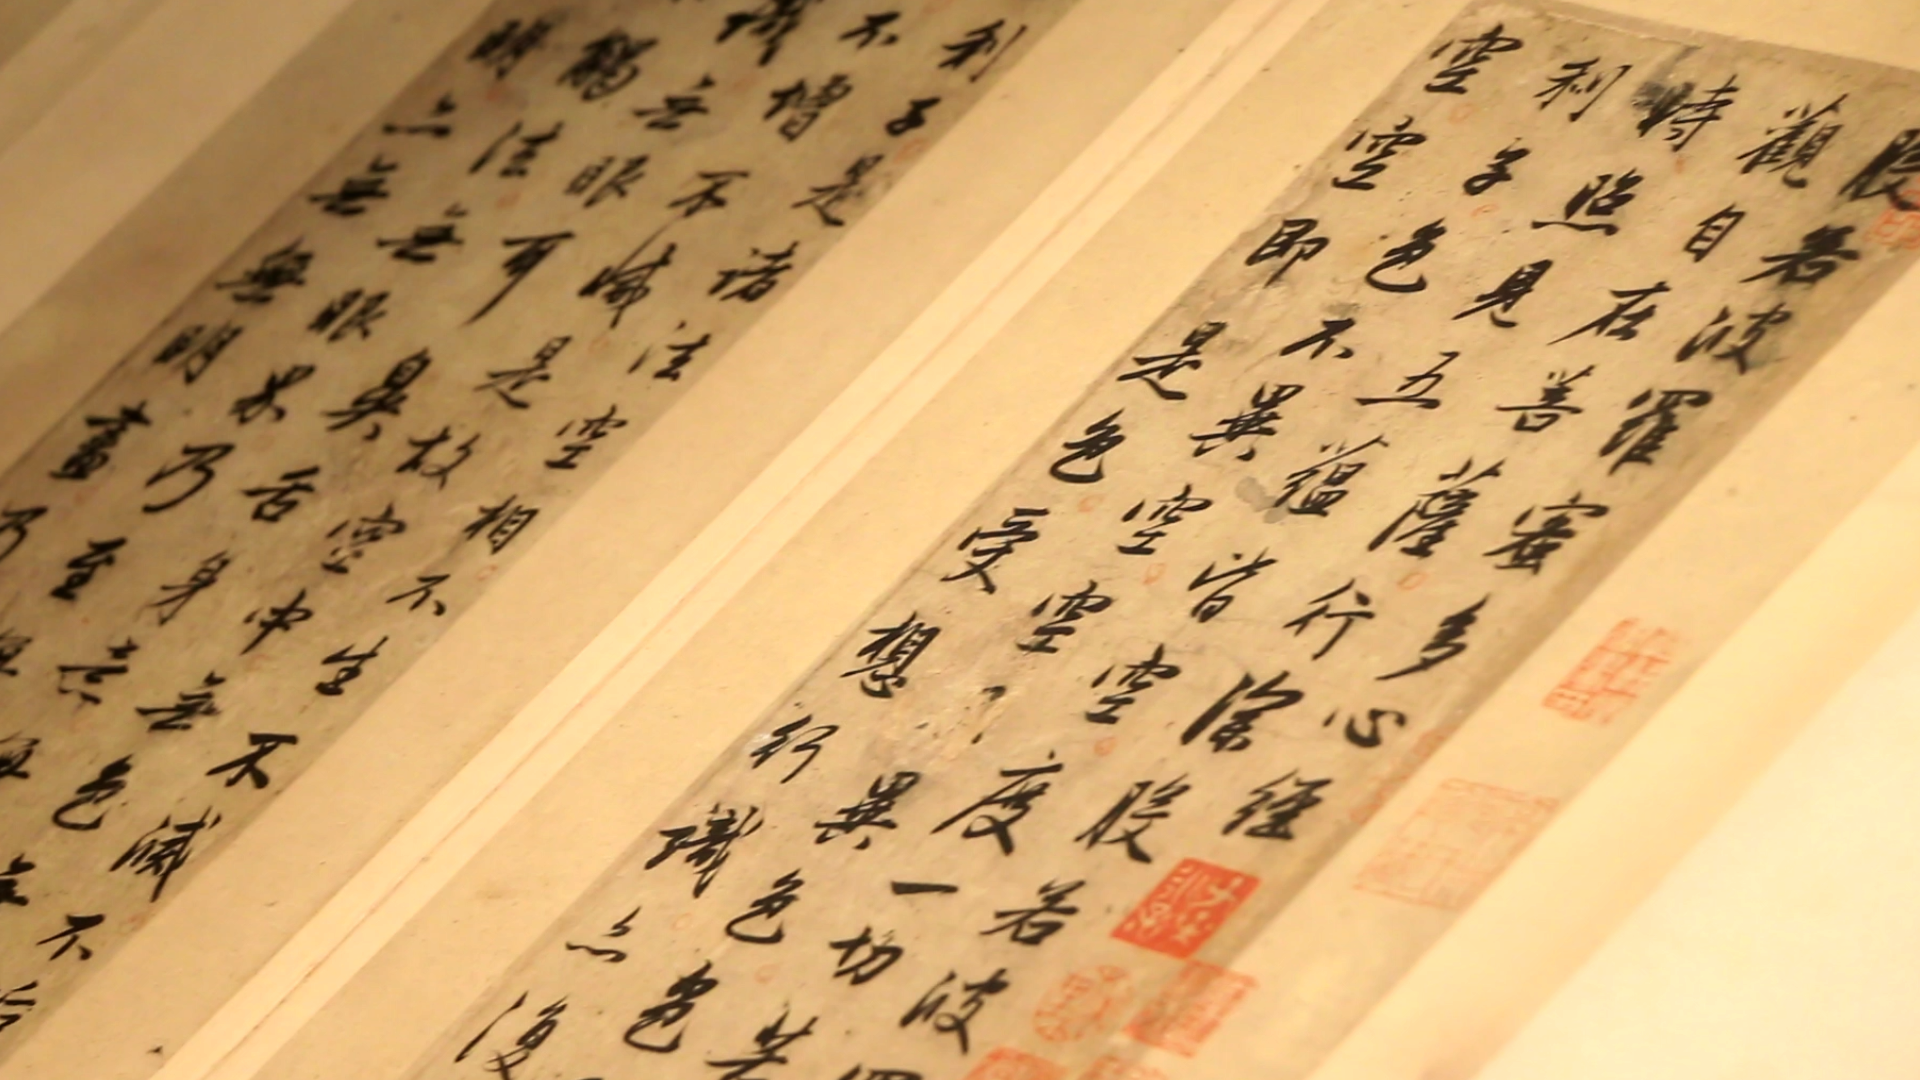 般若波羅蜜多心經
觀自在菩薩行深般若波羅
時照見五蘊皆空度一切苦
利子色不異空空不異色色
空空即是色受想行識亦復
利子是諸法空相不生不滅不垢
不增不減是故空中無色無
識无眼耳鼻舌身意無
觸法無眼界乃至無
明亦無無明盡乃